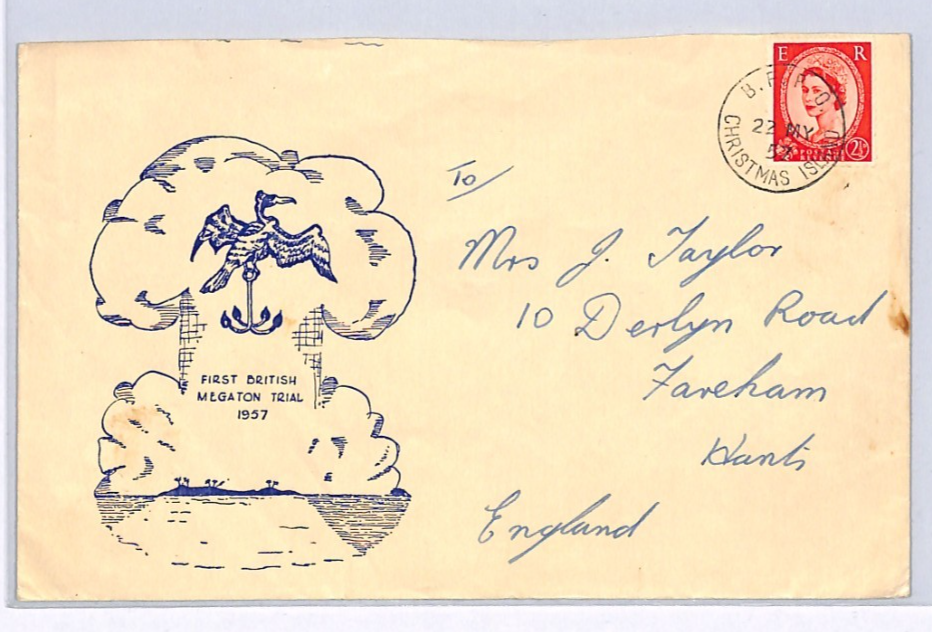 E R
B.F.P.O.
22 MY
57
CHRISTMAS ISLAND
POSTAGE
REVENUE
2½D
To/
Mrs J. Taylor
10 Derlyn Road
Fareham
Hants
England
FIRST BRITISH
MEGATON TRIAL
1957